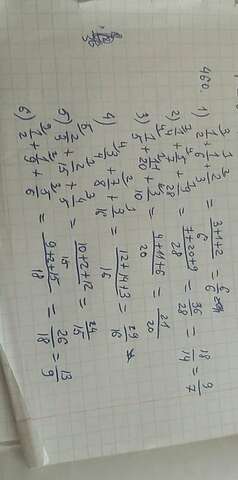 460.
1) 1/2 + 1/6 + 1/3 = (3+1+2)/6 = 6/6
2) 1/4 + 5/7 + 9/28 = (7+20+9)/28 = 36/28 = 18/14 = 9/7
3) 1/5 + 11/20 + 3/10 = (4+11+6)/20 = 21/20
4) 3/4 + 7/8 + 3/16 = (12+14+3)/16 = 29/16
5) 2/3 + 2/15 + 4/5 = (10+2+12)/15 = 24/15
6) 1/2 + 1/9 + 5/6 = (9+2+15)/18 = 26/18 = 13/9